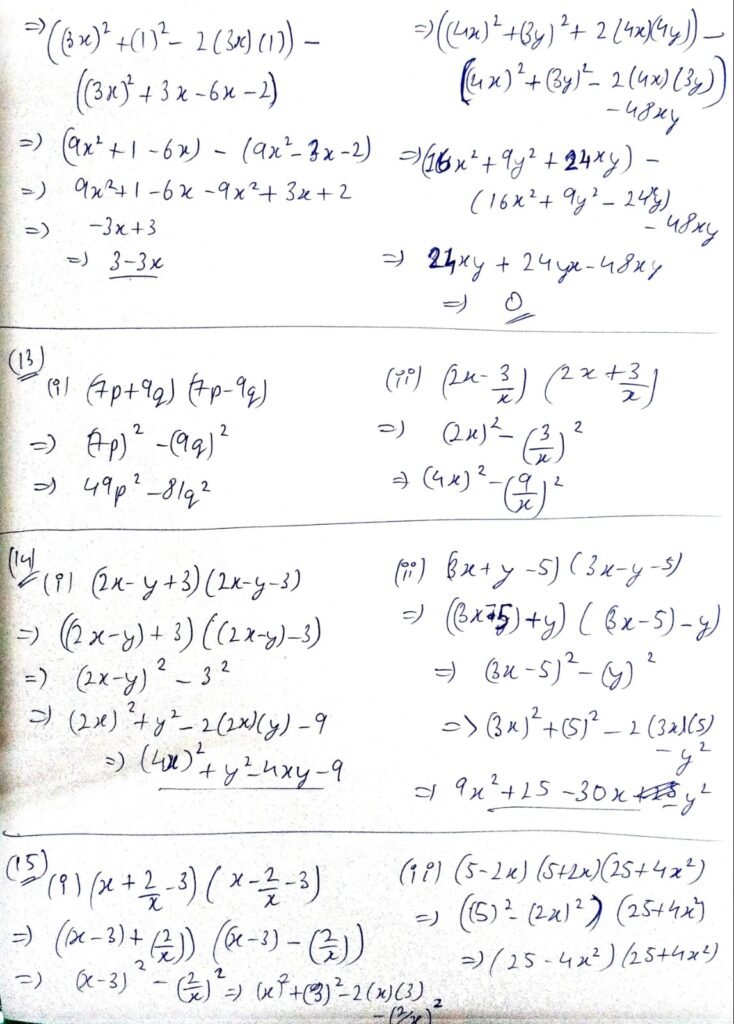 ⇒ ((3x)² + (1)² - 2(3x)(1)) -
((3x)² + 3x - 6x - 2)
⇒ (9x² + 1 - 6x) - (9x² - 3x - 2)
⇒ 9x² + 1 - 6x - 9x² + 3x + 2
⇒ -3x + 3
⇒ 3 - 3x
⇒ ((4x)² + (3y)² + 2(4x)(4y)) -
((4x)² + (3y)² - 2(4x)(3y))
- 48xy
⇒ (16x² + 9y² + 24xy) -
(16x² + 9y² - 24xy)
- 48xy
⇒ 24xy + 24yx - 48xy
⇒ 0
(13)
(i) (7p+9q) (7p-9q)
⇒ (7p)² - (9q)²
⇒ 49p² - 81q²
(ii) (2x - 3/x) (2x + 3/x)
⇒ (2x)² - (3/x)²
⇒ (4x)² - (9/x)²
(14)
(i) (2x - y + 3) (2x - y - 3)
⇒ ((2x-y) + 3) ((2x-y) - 3)
⇒ (2x-y)² - 3²
⇒ (2x)² + y² - 2(2x)(y) - 9
⇒ (4x)² + y² - 4xy - 9
(ii) (3x + y - 5) (3x - y - 5)
⇒ ((3x-5) + y) ((3x-5) - y)
⇒ (3x-5)² - (y)²
⇒ (3x)² + (5)² - 2(3x)(5)
- y²
⇒ 9x² + 25 - 30x - y²
(15)
(i) (x + 2/x - 3) (x - 2/x - 3)
⇒ ((x-3) + (2/x)) ((x-3) - (2/x))
⇒ (x-3)² - (2/x)² ⇒ (x)² + (3)² - 2(x)(3)
- (2/x)²
(ii) (5-2x) (5+2x) (25+4x²)
⇒ ((5)² - (2x)²) (25+4x²)
⇒ (25 - 4x²) (25+4x²)